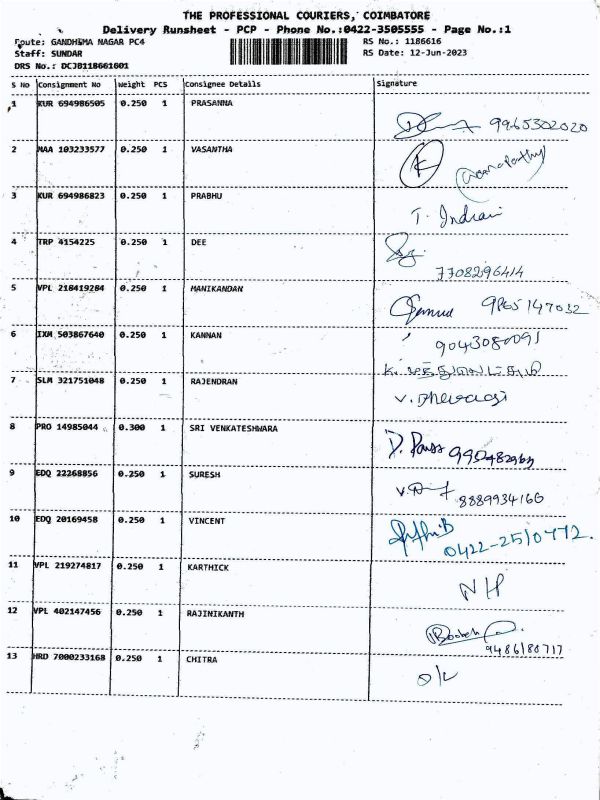 THE PROFESSIONAL COURIERS, COIMBATORE
Delivery Runsheet - PCP - Phone No.:0422-3505555 - Page No.:1
Route: GANDHIMA NAGAR PC4 RS No.: 1186616
Staff: SUNDAR RS Date: 12-Jun-2023
DRS No.: DCJB118661601
S No Consignment No Weight PCS Consignee Details Signature
1 KUR 694986505 0.250 1 PRASANNA
9965302020
2 MAA 103233577 0.250 1 VASANTHA
K Ganapathy
3 KUR 694986823 0.250 1 PRABHU
T. Indrani
4 TRP 4154225 0.250 1 DEE
7708296414
5 VPL 218419284 0.250 1 MANIKANDAN
9865147032
6 IXM 503867640 0.250 1 KANNAN
9043080091
K.
7 SLM 321751048 0.250 1 RAJENDRAN
V.
8 PRO 14985044 0.300 1 SRI VENKATESHWARA
D.
9 EDQ 22268856 0.250 1 SURESH
8889934166
10 EDQ 20169458 0.250 1 VINCENT
0422-2510772.
11 VPL 219274817 0.250 1 KARTHICK
N/P
12 VPL 402147456 0.250 1 RAJINIKANTH
9486180717
13 HRD 7000233168 0.250 1 CHITRA
O/L